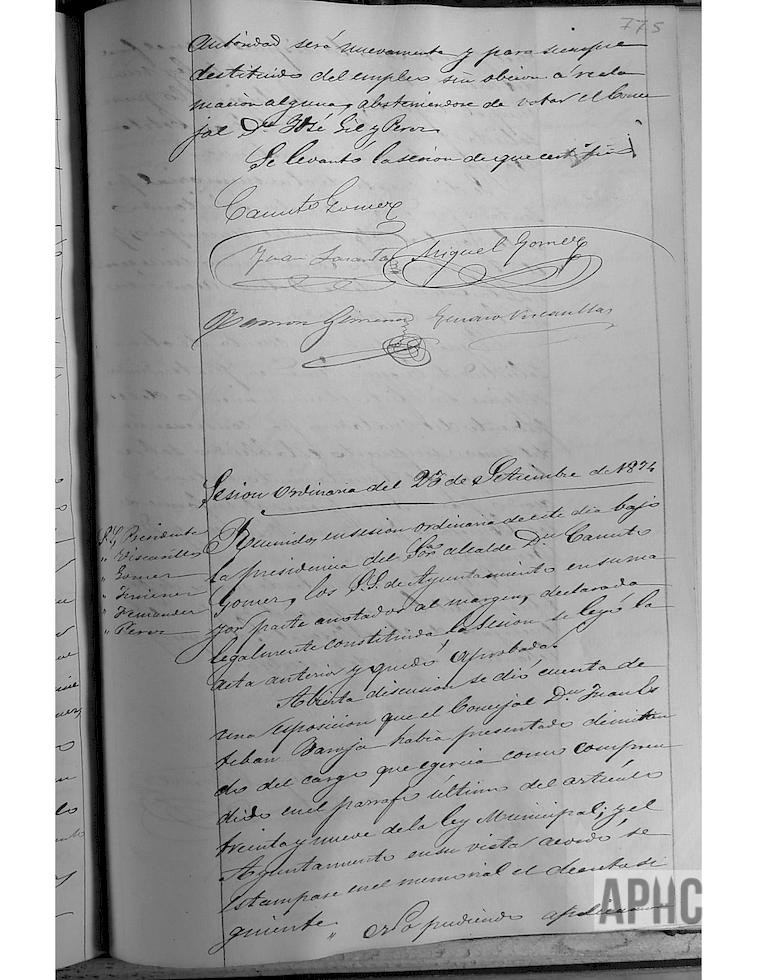 775
Autoridad será nuevamente y para siempre
destituido del empleo sin obcion á recla
macion alguna, absteniendose de votar el Conce
jal Dn José Gil y Perez
Se levantó la sesion de que certifico
Canuto Gomez
Juan Miguel Gomez
Ramon Gimenez Genaro Viscasillas
Sesion ordinaria del 25 de Setiembre de 1874
S.S. Presidente
" Viscasillas
" Gomez
" Jimenez
" Fernandez
" Perez
Reunidos en sesion ordinaria de este dia bajo
la presidencia del Sor alcalde Dn Canuto
Gomez, los S.S. de Ayuntamiento en su ma
yor parte anotados al margen, declarada
legalmente constituida la sesion se leyó la
acta anterior y quedó aprobada.
Abierta discusion se dió cuenta de
una exposicion que el Concejal Dn Juan Es
teban había presentado dimitien
do del cargo que egercia como compren
dido en el parrafo último del artículo
treinta y nueve de la ley Municipal; y el
Ayuntamiento en su vista acordó se
estampase en el memorial el decreto si
guiente " No pudiendo
APHC